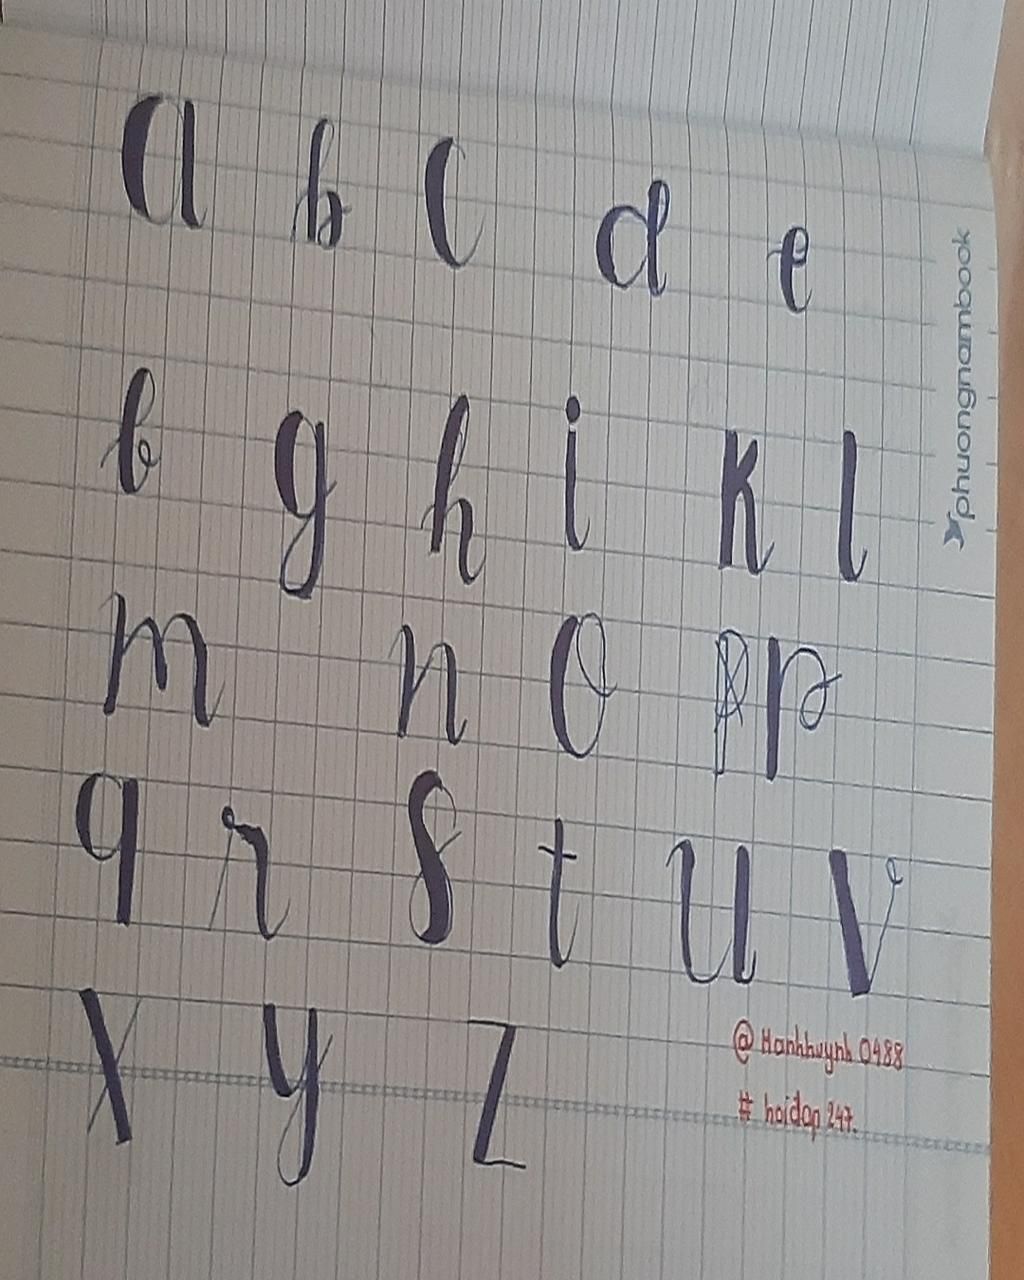 a b c d e
b g h i k l
m n o p p
q r s t u v
x y z
@ Hanhhuynh 0488
# hoidap 247.
phuongnambook